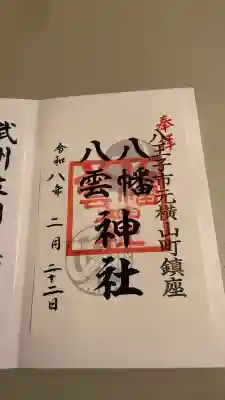 奉拝
八王子市元横山町鎮座
八幡
八雲神社
令和八年二月二十二日
武州